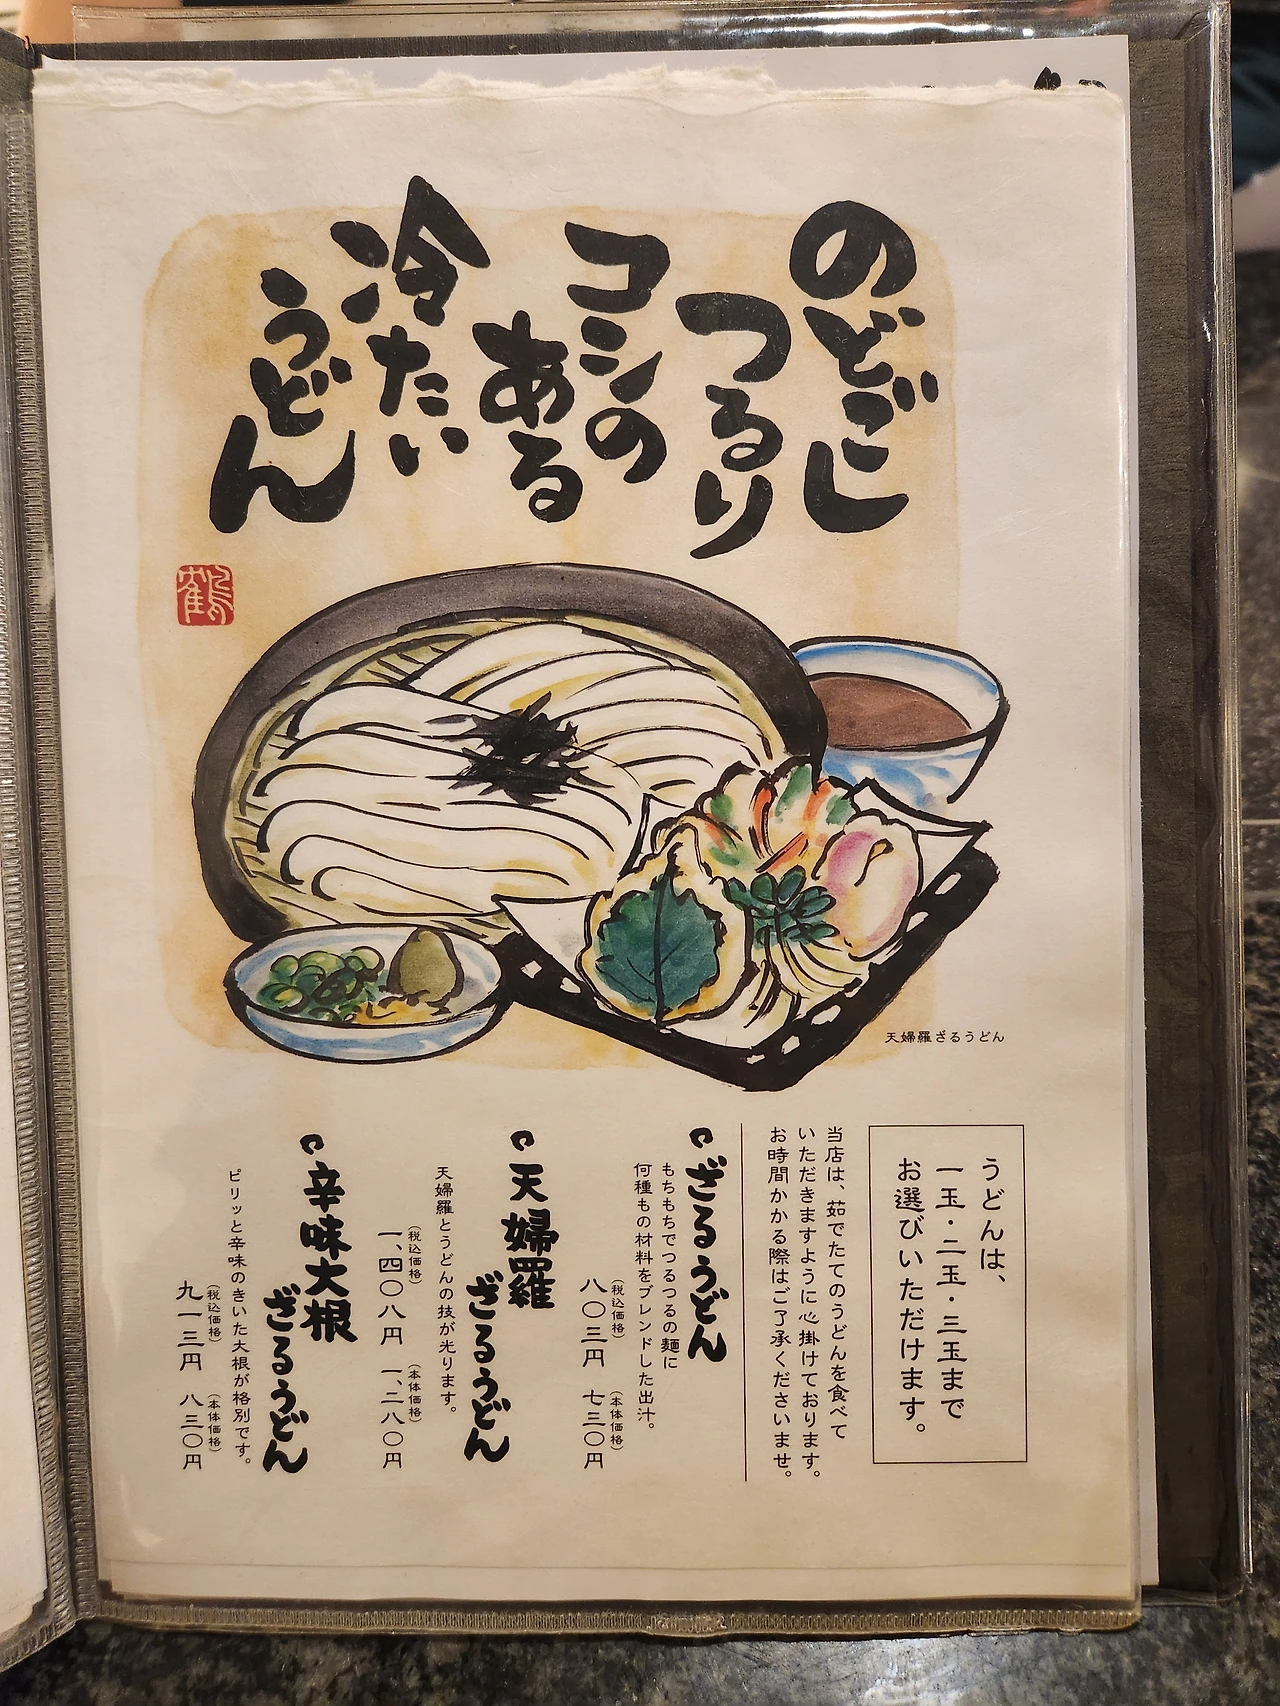 のどごし
つるり
コシの
ある
冷たい
うどん
鶴
天婦羅ざるうどん
うどんは、
一玉・二玉・三玉まで
お選びいただけます。
当店は、茹でたてのうどんを食べて
いただきますように心掛けております。
お時間かかる際はご了承くださいませ。
ざるうどん
もちもちでつるつるの麺に
何種もの材料をブレンドした出汁。
(税込価格) (本体価格)
八〇三円 七三〇円
天婦羅
ざるうどん
天婦羅とうどんの技が光ります。
(税込価格) (本体価格)
一、四〇八円 一、二八〇円
辛味大根
ざるうどん
ピリッと辛味のきいた大根が格別です。
(税込価格) (本体価格)
九一三円 八三〇円